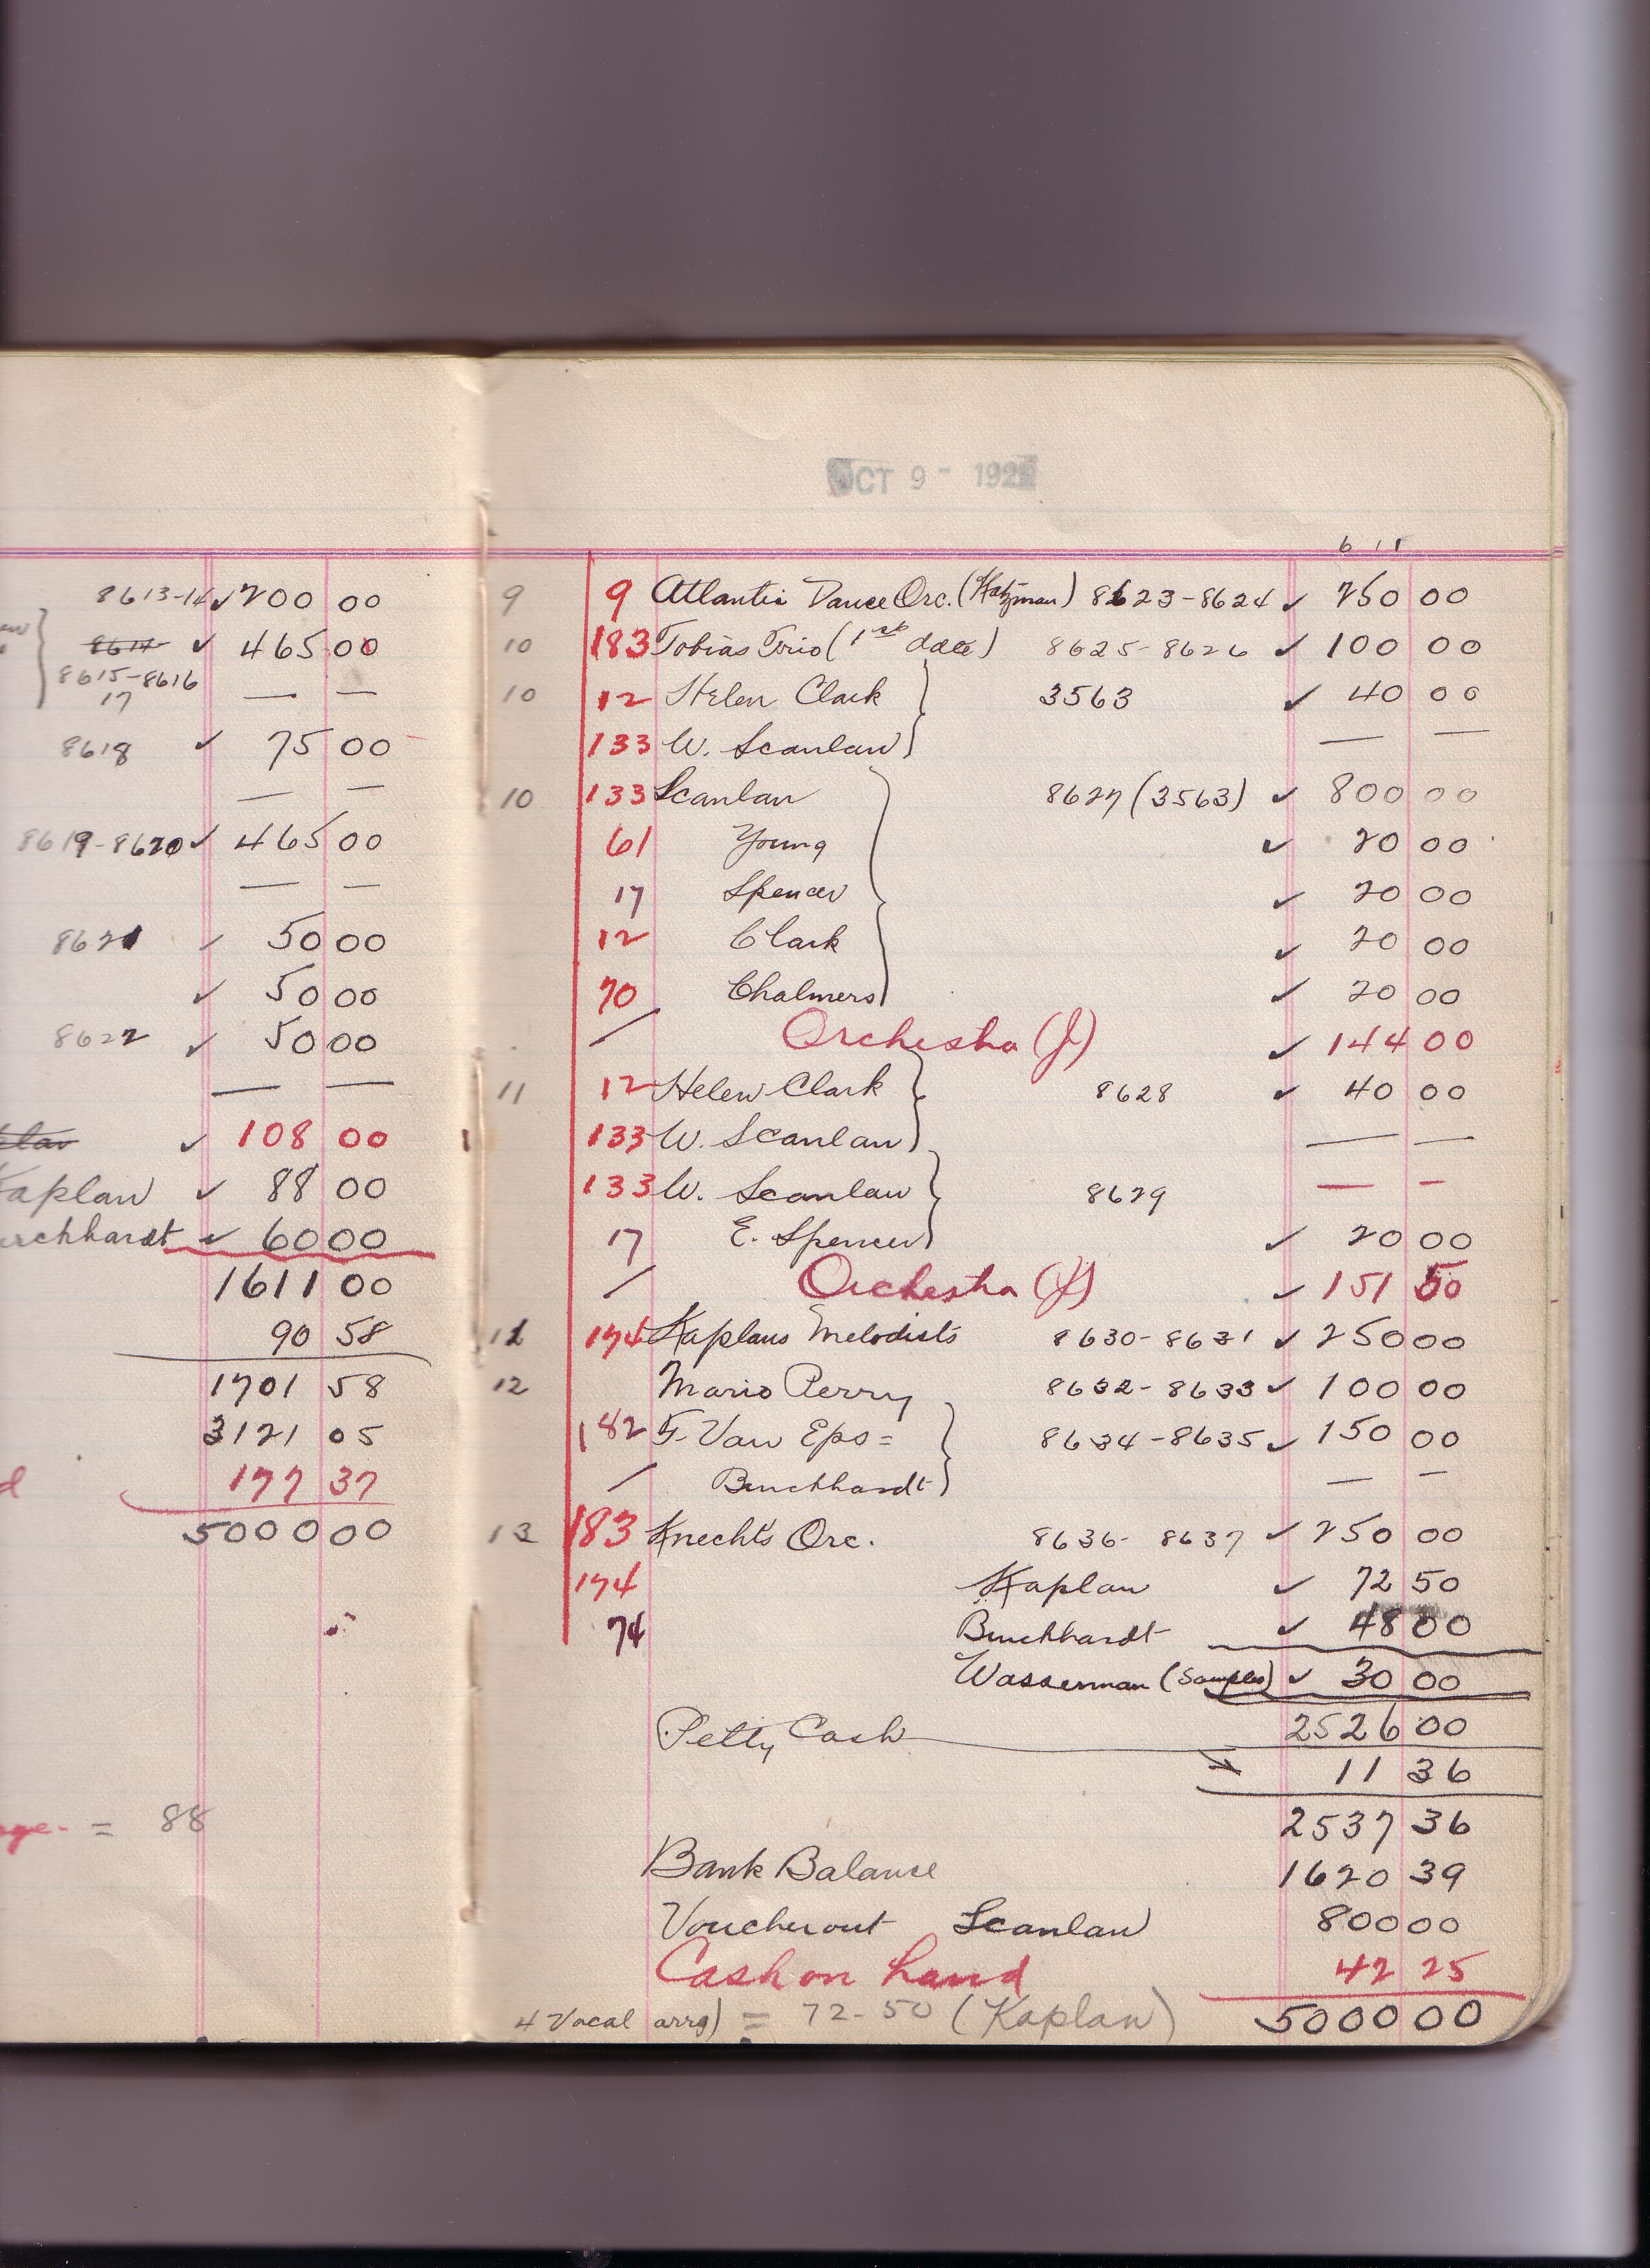 8613-14 ✓ 200 00
8614 ✓ 465 00
8615-8616
17 — —
8618 ✓ 75 00
— —
8619-8620 ✓ 465 00
— —
8621 ✓ 50 00
✓ 50 00
8622 ✓ 50 00
— —
✓ 108 00
Kaplan ✓ 88 00
urchhardt ✓ 60 00
1611 00
90 58
1701 58
3121 05
d 177 37
5000 00
= 88
OCT 9 - 192
6 11
9 9 Atlantic Dance Orc. (Katzman) 8623-8624 ✓ 250 00
10 183 Tobias Trio (1st date) 8625-8626 ✓ 100 00
10 12 Helen Clark } 3563 ✓ 40 00
133 W. Scanlan } — —
10 133 Scanlan 8627 (3563) ✓ 800 00
61 Young ✓ 20 00
17 Spencer ✓ 20 00
12 Clark ✓ 20 00
70 Chalmers ✓ 20 00
/ Orchestra (J) ✓ 144 00
11 12 Helen Clark } 8628 ✓ 40 00
133 W. Scanlan } — —
133 W. Scanlan } 8629 — —
17 E. Spencer } ✓ 20 00
/ Orchestra (J) ✓ 151 50
12 174 Kaplans Melodists 8630-8631 ✓ 250 00
12 Mario Perry 8632-8633 ✓ 100 00
182 F. Van Eps = } 8634-8635 ✓ 150 00
/ Burchhardt } — —
13 183 Knechts Orc. 8636-8637 ✓ 250 00
174 Kaplan ✓ 72 50
74 Burchhardt ✓ 48 00
Wasserman (Samples) ✓ 30 00
2526 00
Petty Cash → 11 36
2537 36
Bank Balance 1620 39
Voucher out Scanlan 800 00
Cash on hand 42 25
4 Vocal arrg) = 72-50 (Kaplan) 5000 00